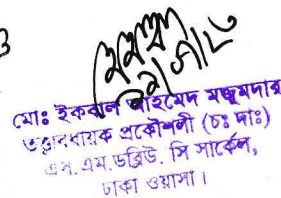 মোঃ ইকবাল আহমেদ মজুমদার
তত্ত্বাবধায়ক প্রকৌশলী (চঃ দাঃ)
এস. এম. ডব্লিউ. সি সার্কেল,
ঢাকা ওয়াসা।